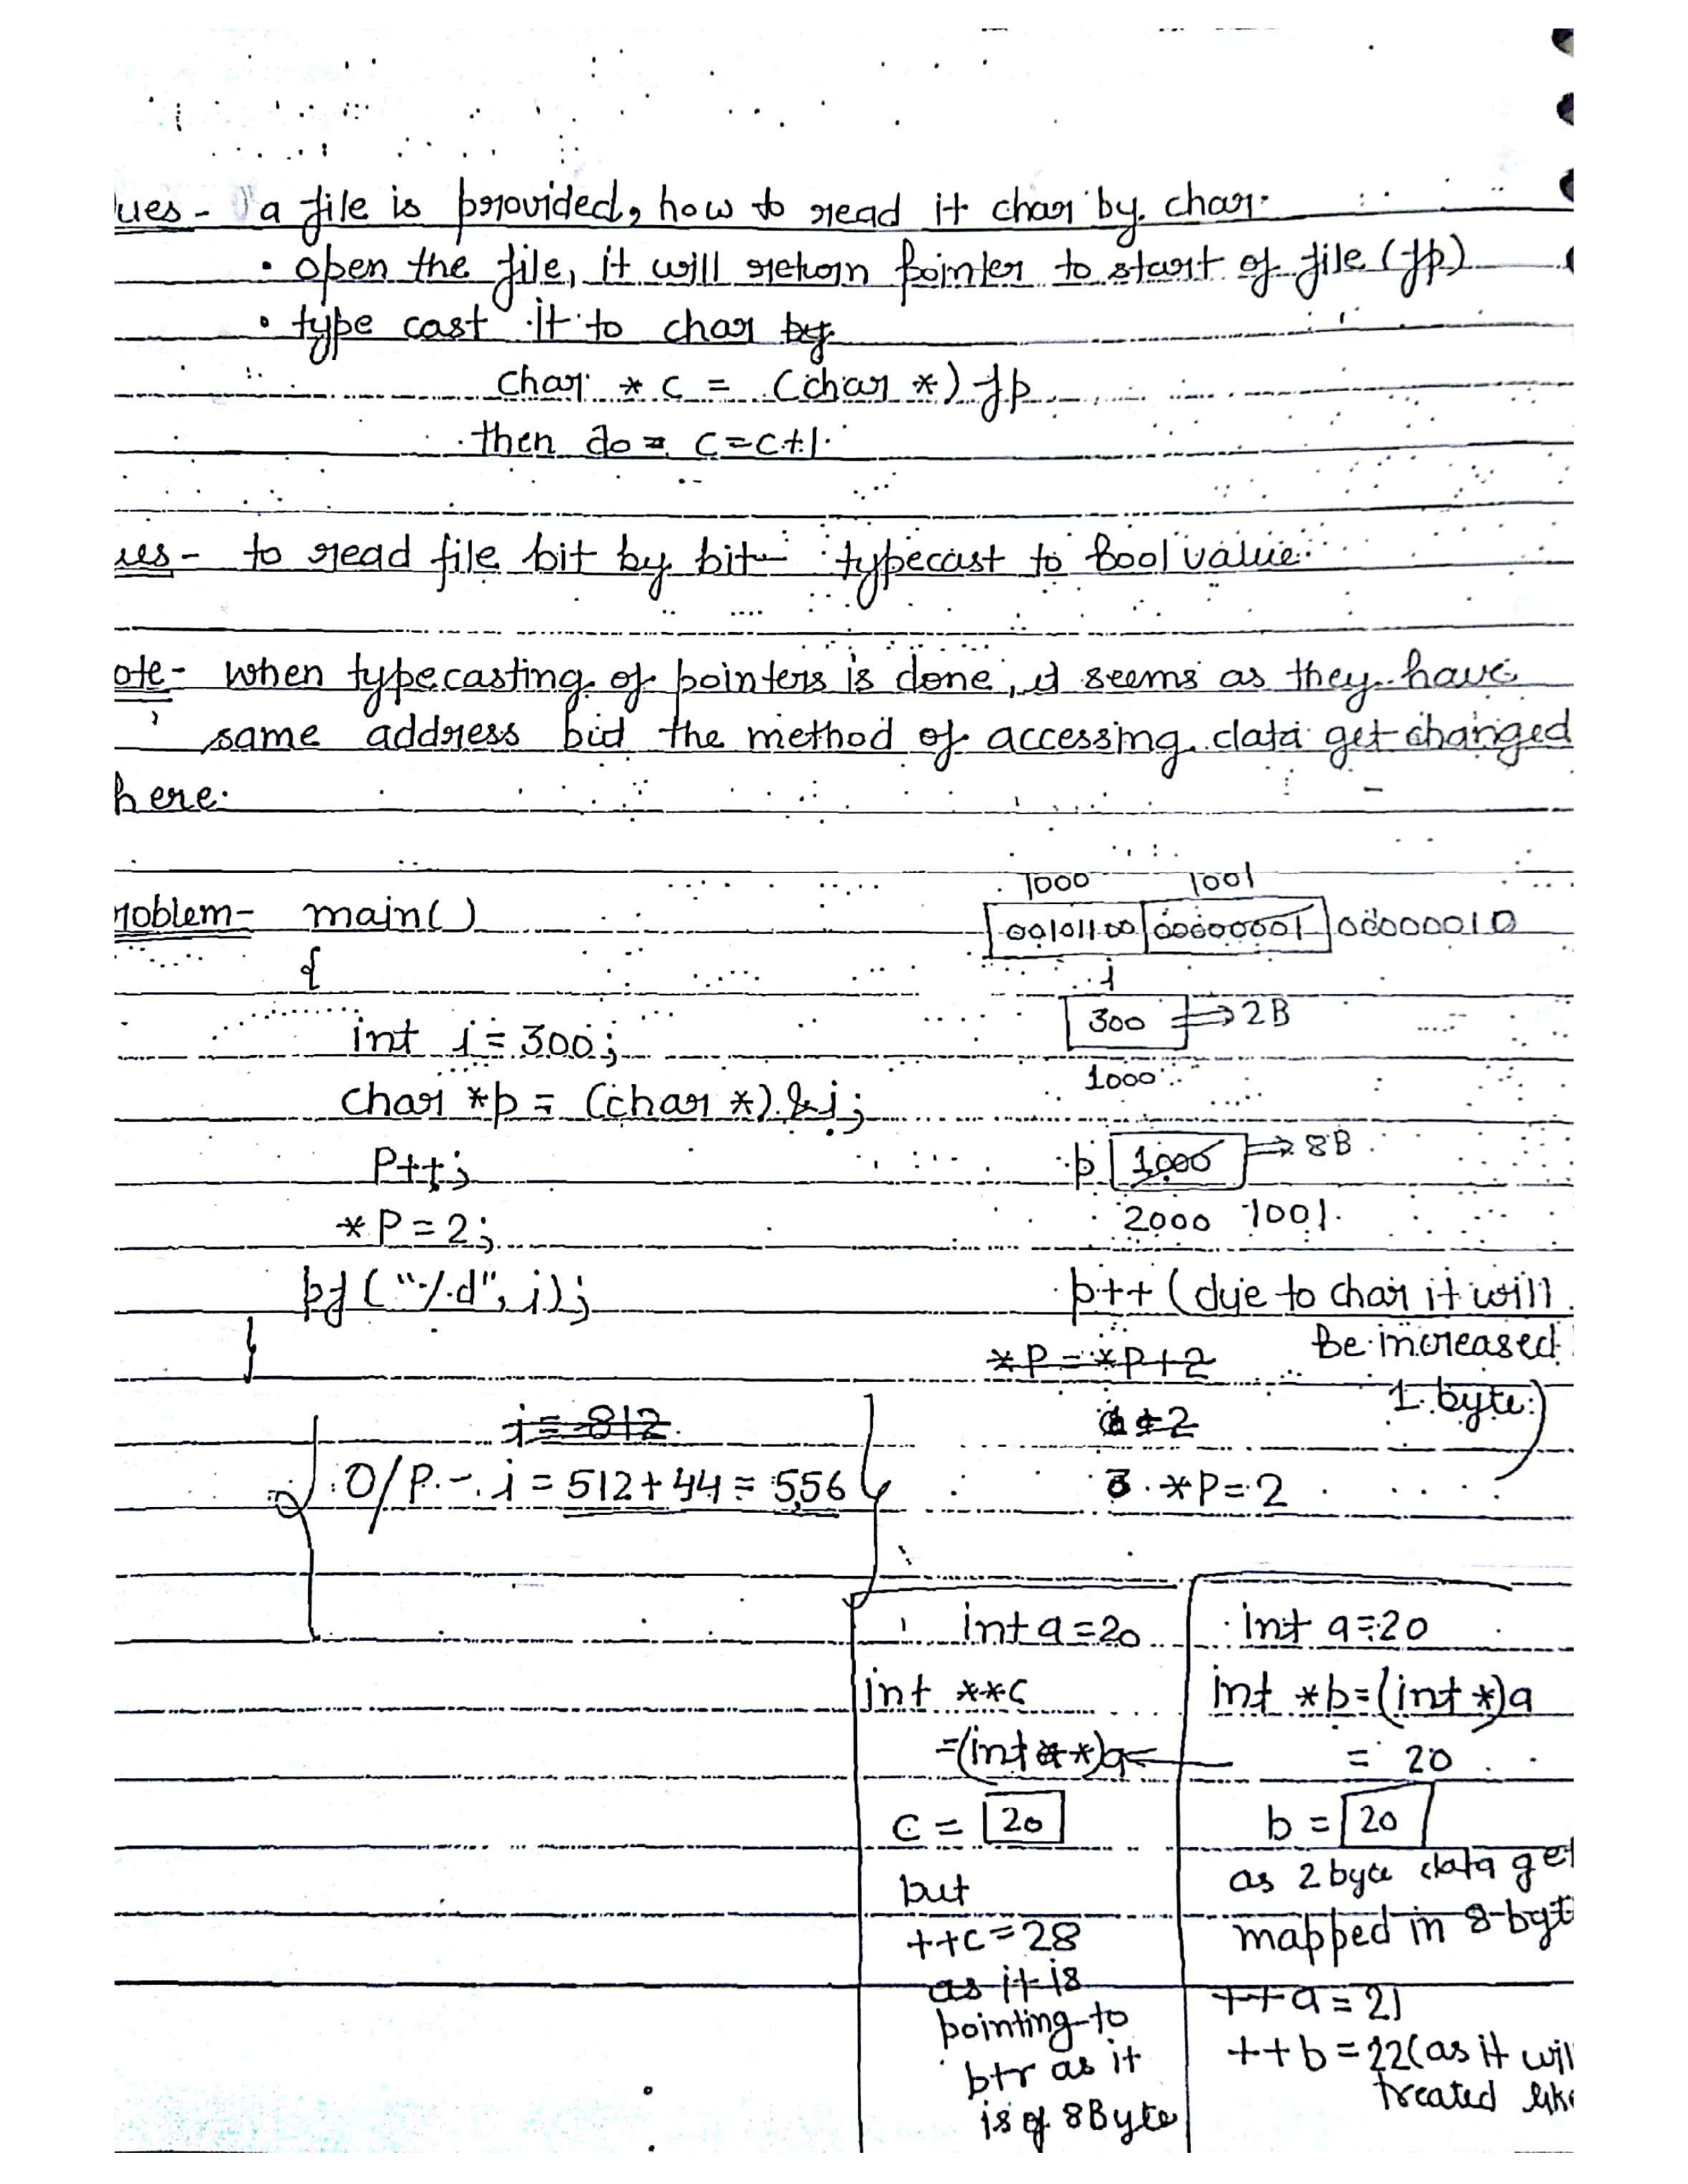 ues - a file is provided, how to read it char by char.
• open the file, it will return pointer to start of file (fp)
• type cast it to char by
char * c = (char *) fp
then do = c = c+1.
ues - to read file bit by bit - typecast to Bool value.
ote - when typecasting of pointers is done, it seems as they have
same address but the method of accessing data get changed
here.
roblem - main()
{
int i = 300;
char *p = (char *) &i;
P++;
*P = 2;
pf ("%d", i);
}
i = 812
O/P - i = 512 + 44 = 556
1000 1001
00101100 00000001 00000010
i
300 ⇒ 2B
1000
p 1000 ⇒ 8B
2000 1001
p++ (due to char it will
be increased
1 byte)
*P = *P+2
*P = 2
int a = 20
int **c
= (int **)a
c = 20
but
++c = 28
as it is
pointing to
ptr as it
is of 8Byte
int a = 20
int *b = (int *)a
= 20
b = 20
as 2 byte data get
mapped in 8-byt
++a = 21
++b = 22 (as it wil
treated like